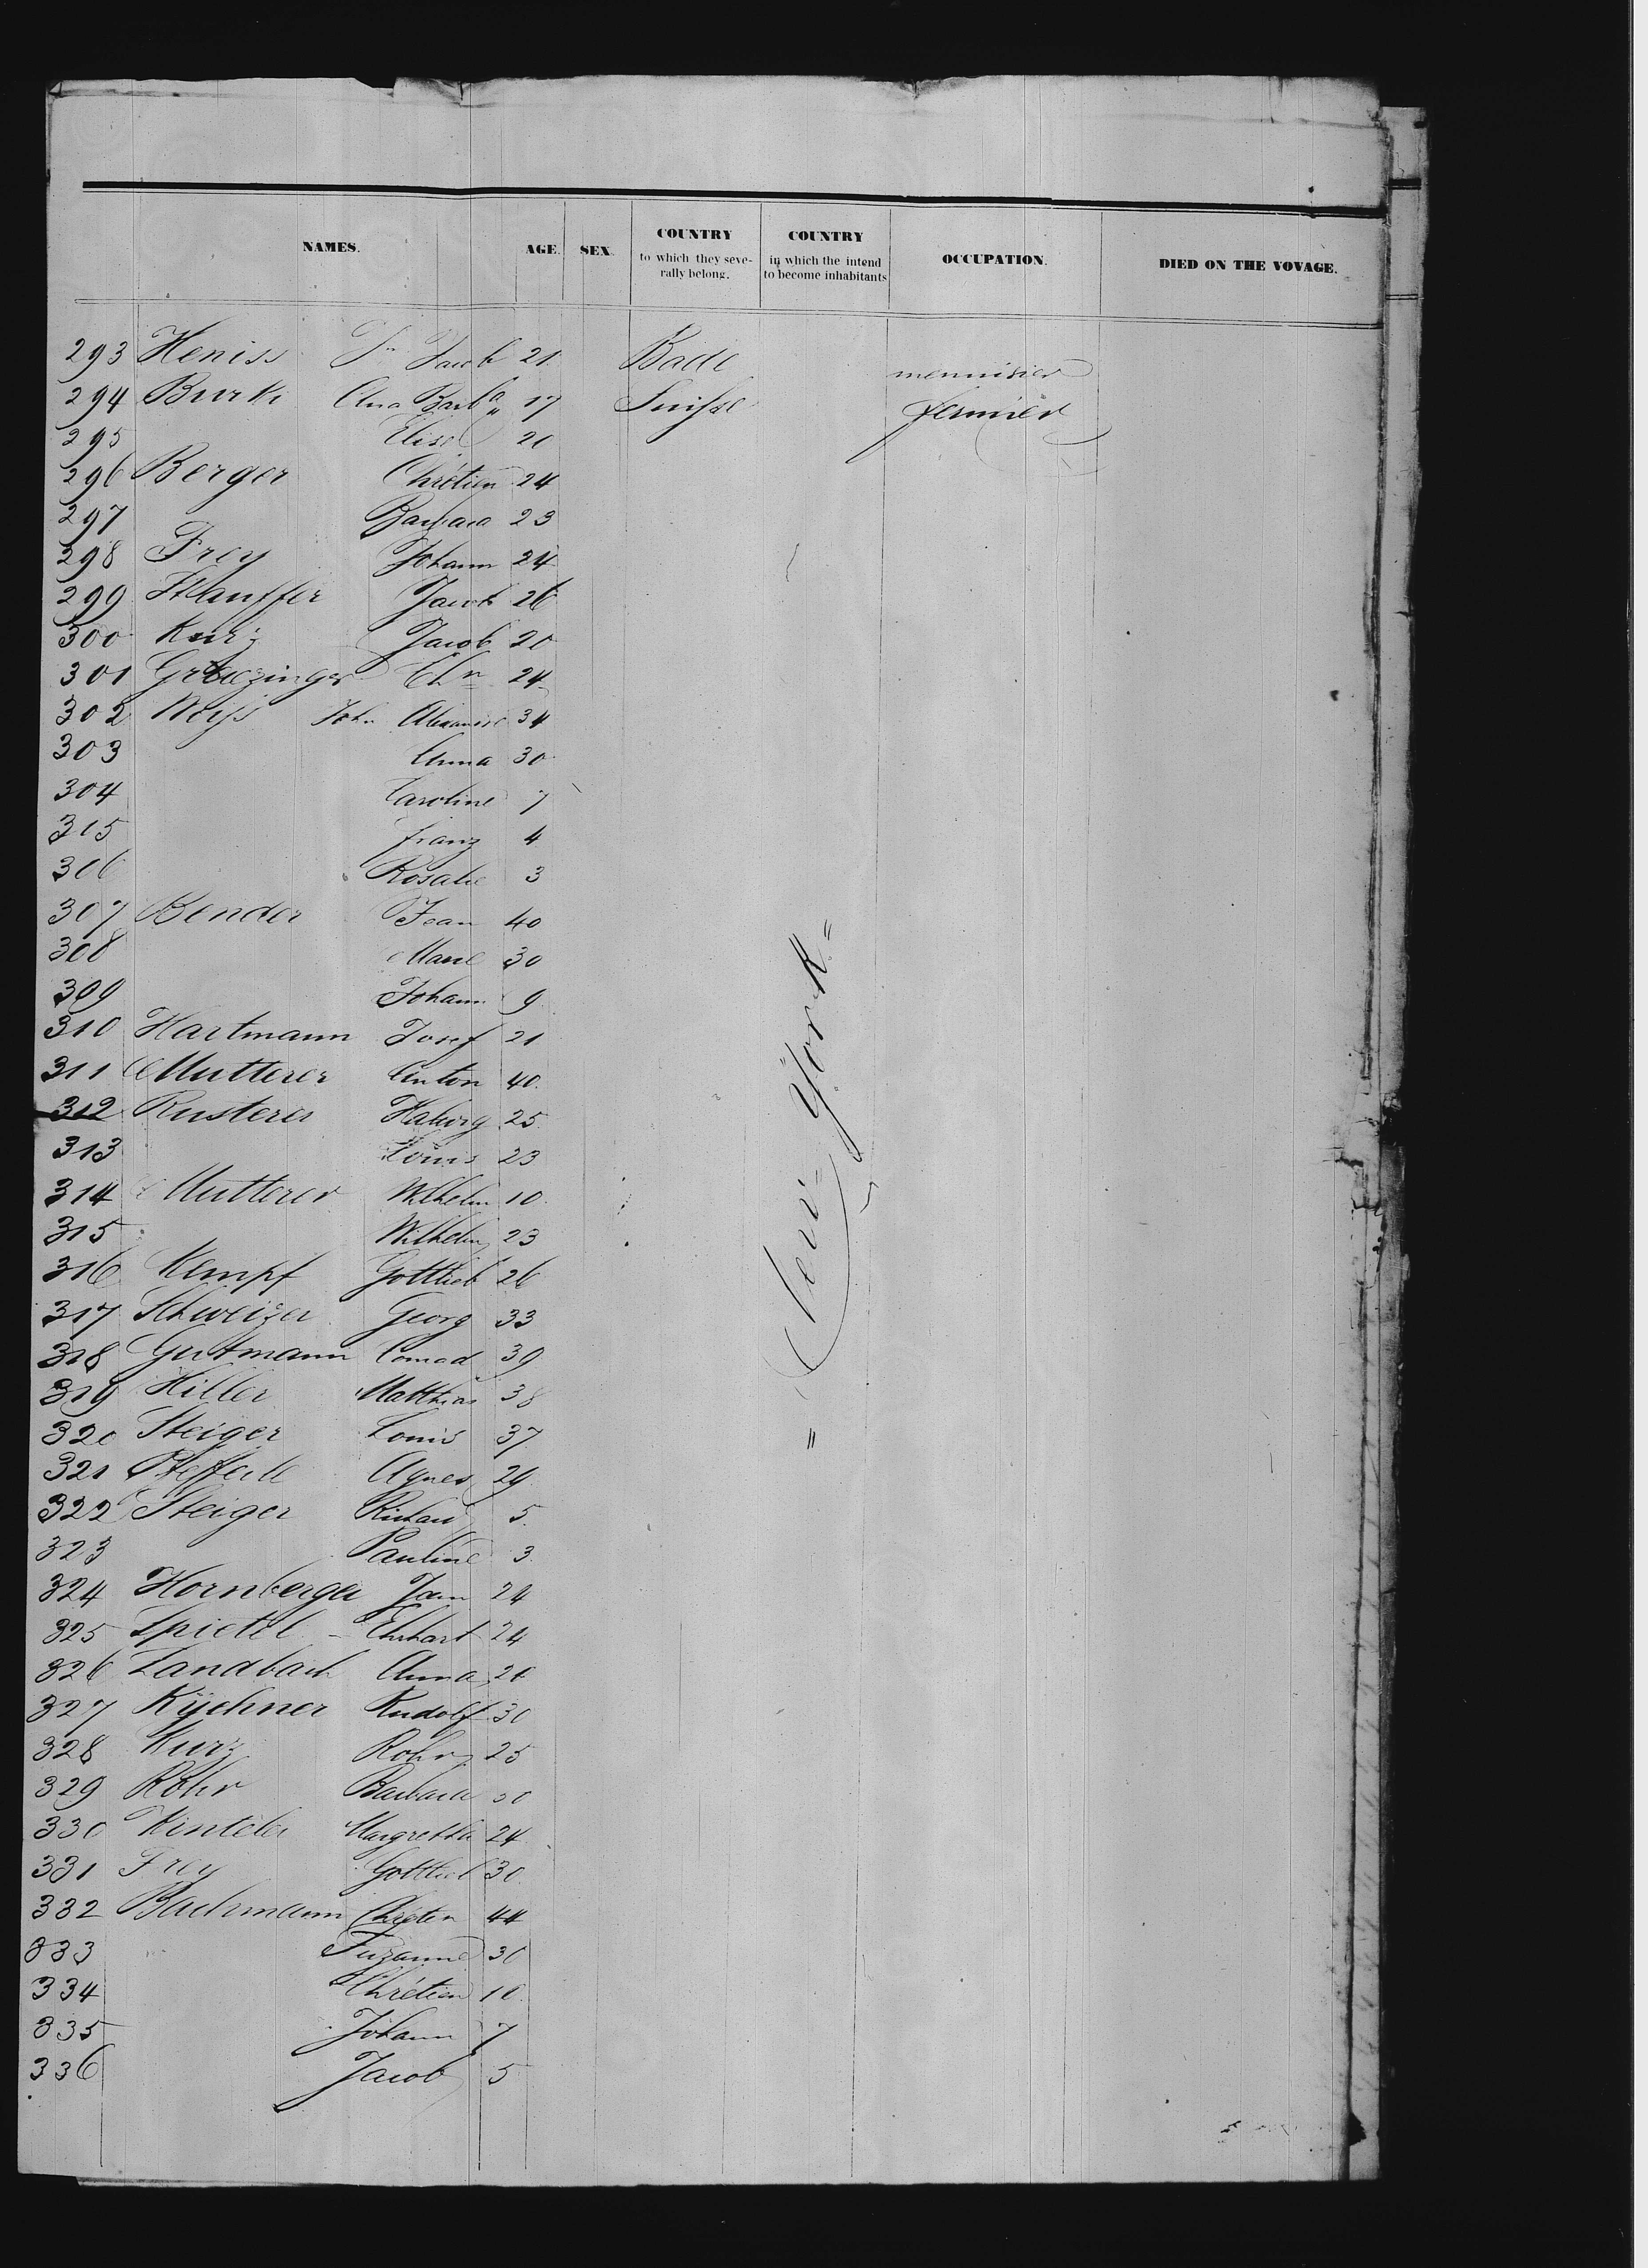 NAMES. AGE. SEX. COUNTRY to which they severally belong. COUNTRY in which the intend to become inhabitants OCCUPATION. DIED ON THE VOVAGE.
293 Heniss Jn Jacob 21 Bade menuisier
294 Burki Ana Barba 17 Suisse fermier
295 Elise 20
296 Berger Chrétien 24
297 Barbara 23
298 Frey Johann 24
299 Stauffer Jacob 26
300 Kurz Jacob 20
301 Graezinger Chn 24
302 Weiss John Alexandre 34
303 Anna 30
304 Caroline 7
315 franz 4
306 Rosalie 3
307 Bender Jean 40
308 Marie 30
309 Johann 9
310 Hartmann Josef 21
311 Mutterer Anton 40
312 Rusterer 25
313 Louis 23
314 Mutterer Wilhelm 10
315 Wilhelm 23
316 Kempf Gottlieb 26
317 Schweizer Georg 33
318 Gutmann Conrad 39
319 Hiller Matthias 38
320 Steiger Louis 37
321 Agnes 29
322 Steiger Richard 5
323 Pauline 3
324 Hornberger Jean 24
325 Ehrhart 24
326 Landbach Anna 20
327 Küchner Rudolf 30
328 Kurz Rohr 25
329 Rohr Barbara 30
330 Margretha 24
331 Frey Gottlieb 30
332 Bachmann Chréten 44
333 Suzanne 30
334 Chrétien 10
335 Johann 7
336 Jacob 5
= New-York =